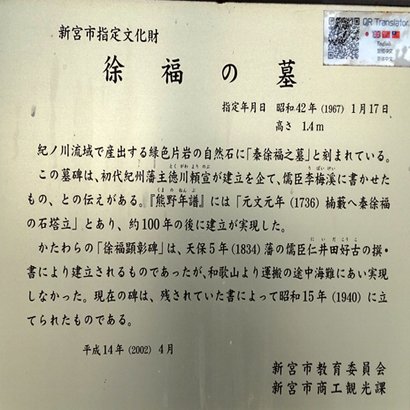 新宮市指定文化財
QR Translator
English
徐福の墓
指定年月日 昭和42年(1967) 1月17日
高さ 1.4m
紀ノ川流域で産出する緑色片岩の自然石に「秦徐福之墓」と刻まれている。
とくがわよりのぶ りばいけい
この墓碑は、初代紀州藩主徳川頼宣が建立を企て、儒臣李梅溪に書かせた
くまのねんぷ
もの、との伝えがある。『熊野年譜』には「元文元年(1736) 楠藪へ秦徐福
の石塔立」とあり、約100年の後に建立が実現した。
にいだこうこ
かたわらの「徐福顕彰碑」は、天保5年(1834) 藩の儒臣仁井田好古の撰・
書により建立されるものであったが、和歌山より運搬の途中海難にあい実現
しなかった。現在の碑は、残されていた書によって昭和15年(1940) に立
てられたものである。
平成14年(2002) 4月
新宮市教育委員会
新宮市商工観光課